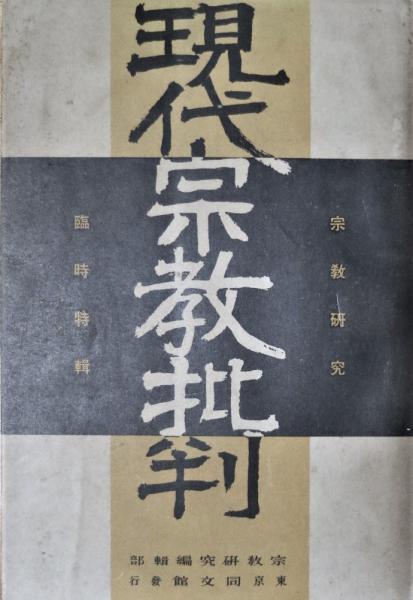 現代宗教批判
宗教研究
臨時特輯
宗教研究編輯部
東京同文館發行